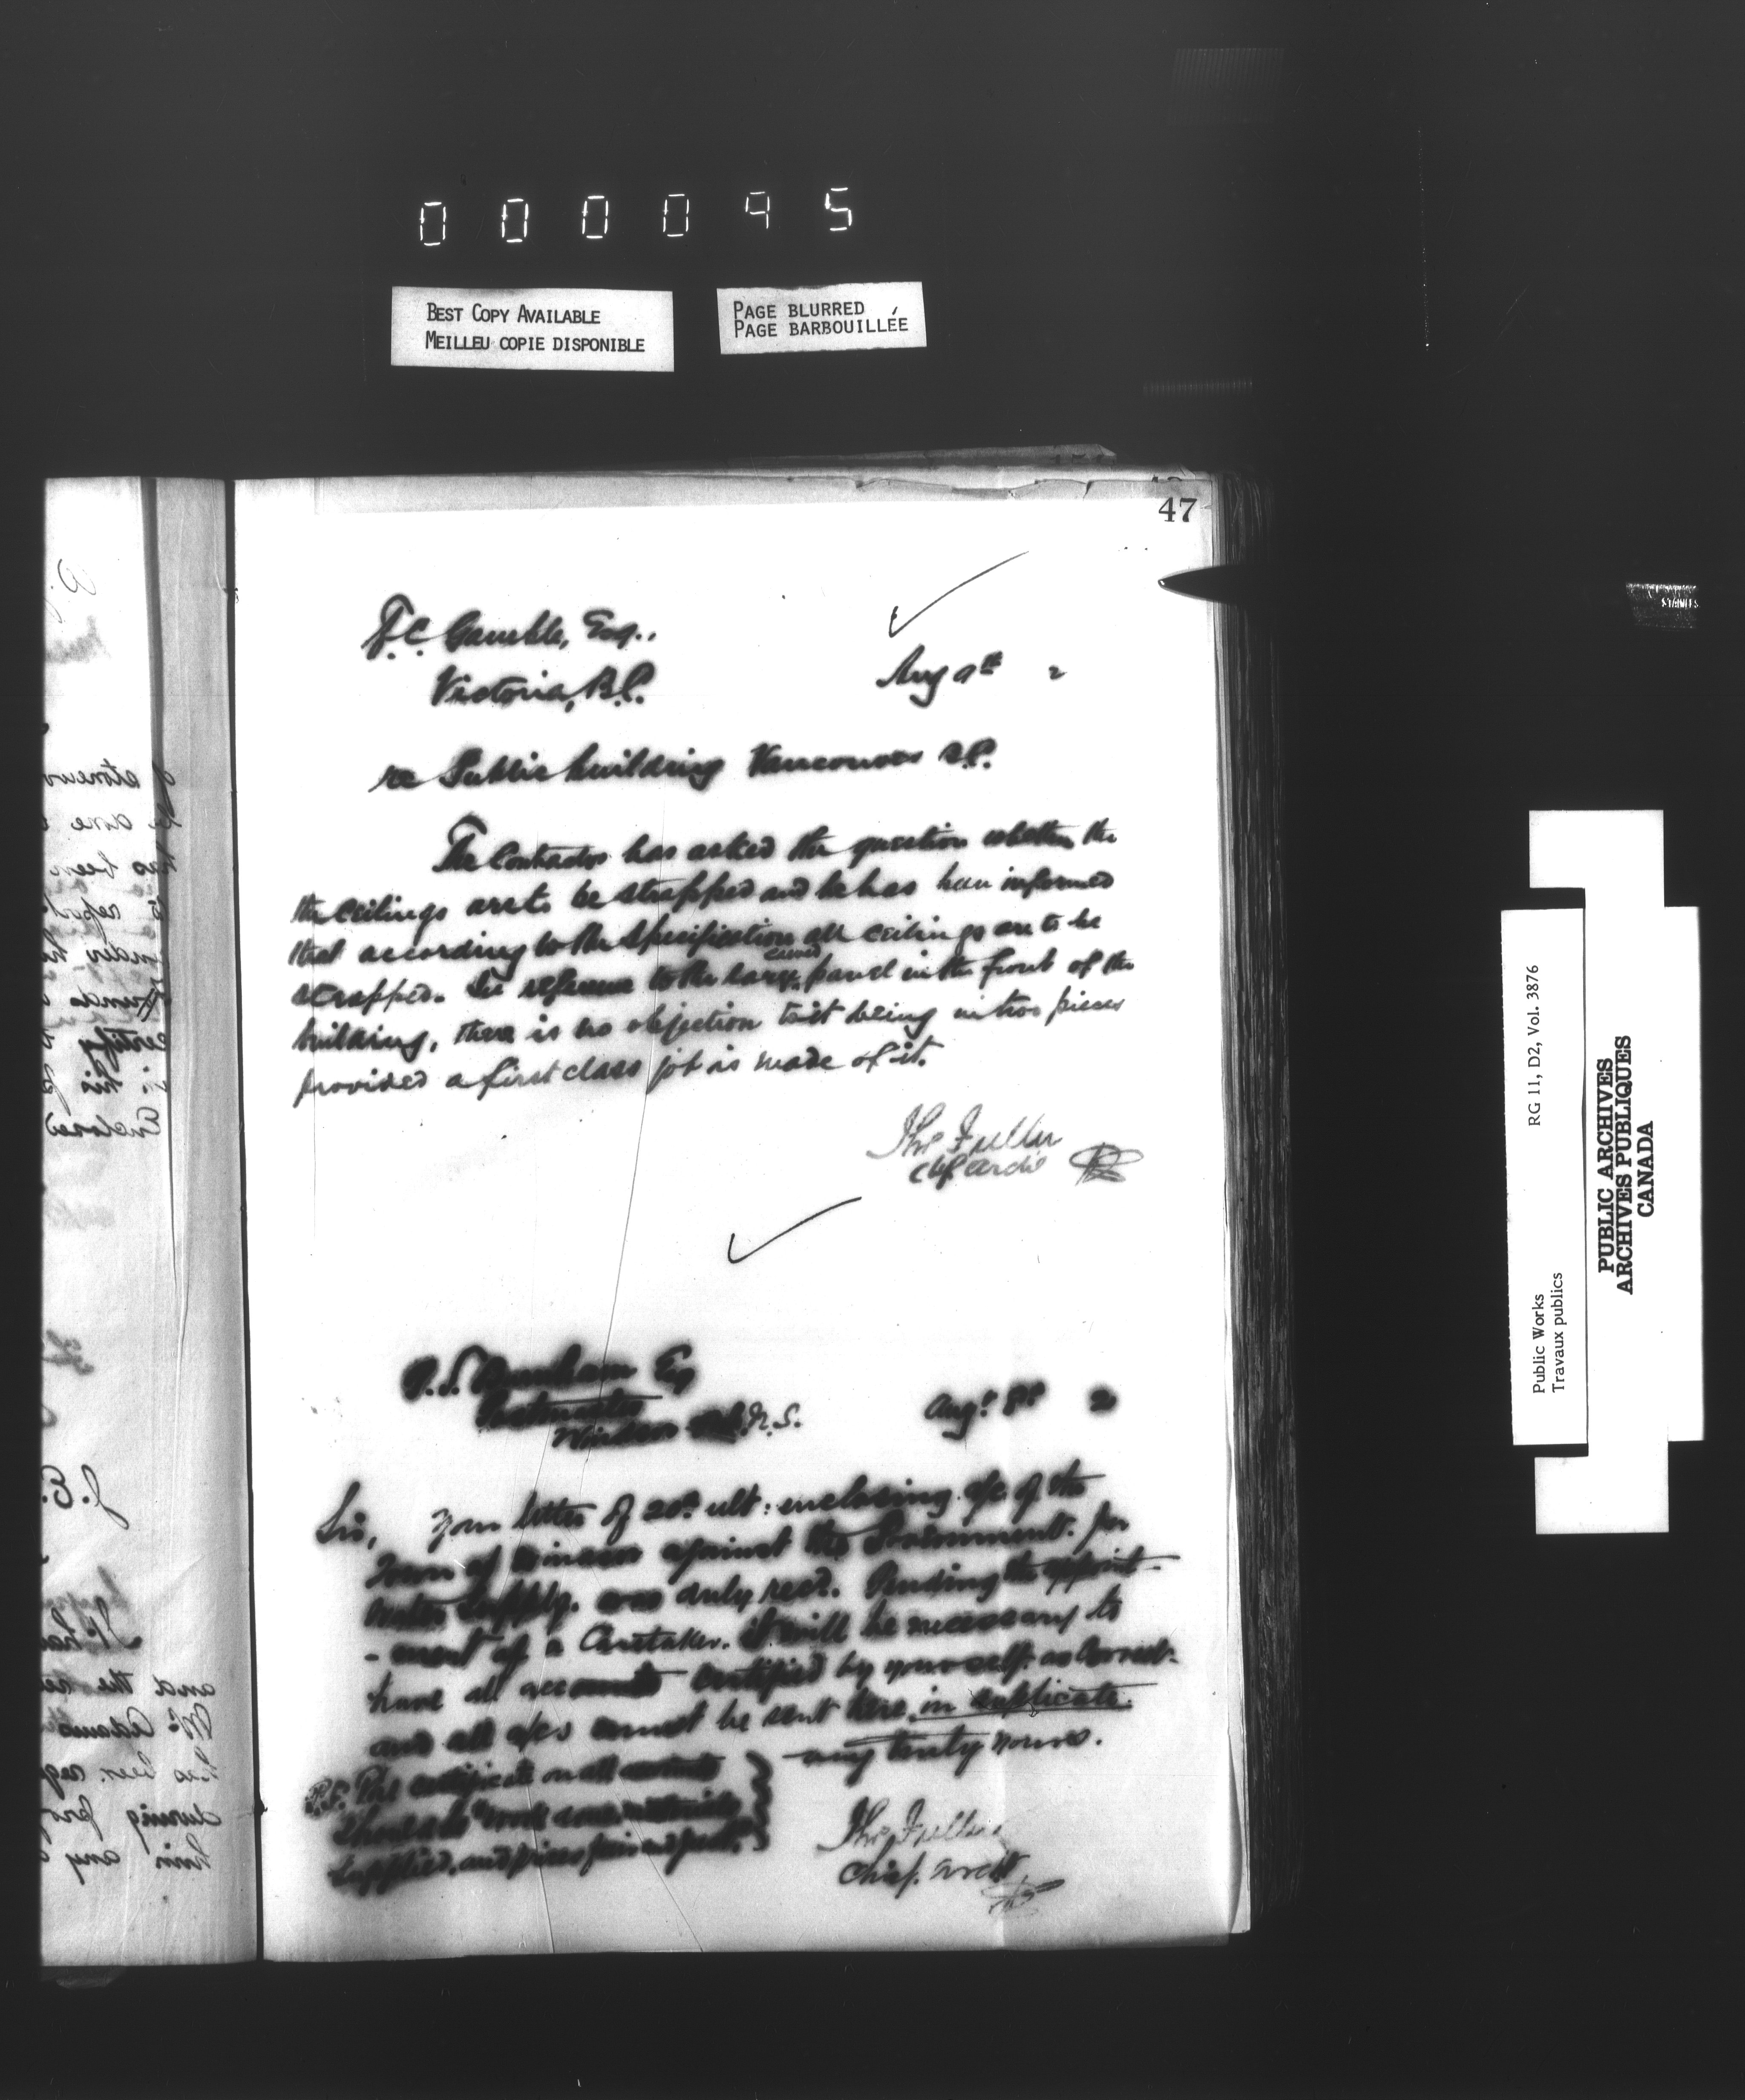 000095
BEST COPY AVAILABLE
MEILLEU COPIE DISPONIBLE
PAGE BLURRED
PAGE BARBOUILLÉE
47
F.C. Gamble, Esq.,
Victoria, B.C.
Aug 9th 2
re Public building Vancouver B.C.
The Contractor has asked the question whether the
the ceilings are to be strapped and he has been informed
that according to the specification all ceilings are to be
strapped. In reference to the large carved panel in the front of the
building, there is no objection to it being in two pieces
provided a first class job is made of it.
Thos Fuller
Chf. Archt
P.S. Burnham Esq
Postmaster
Windsor N.S.
Augt 9th 2
Sir, Your letter of 20th ult: enclosing a/c of the
Town of Windsor against the Government for
water supply, was duly recd. Pending the appoint-
-ment of a Caretaker, it will be necessary to
have all accounts certified by yourself as correct
and all a/cs must be sent here in duplicate.
truly yours.
P.S. The certificate on all accounts
should be "work done, materials
supplied, and prices fair and just."
Thos Fuller
Chief. Archt
RG 11, D2, Vol. 3876
Public Works
Travaux publics
PUBLIC ARCHIVES
ARCHIVES PUBLIQUES
CANADA